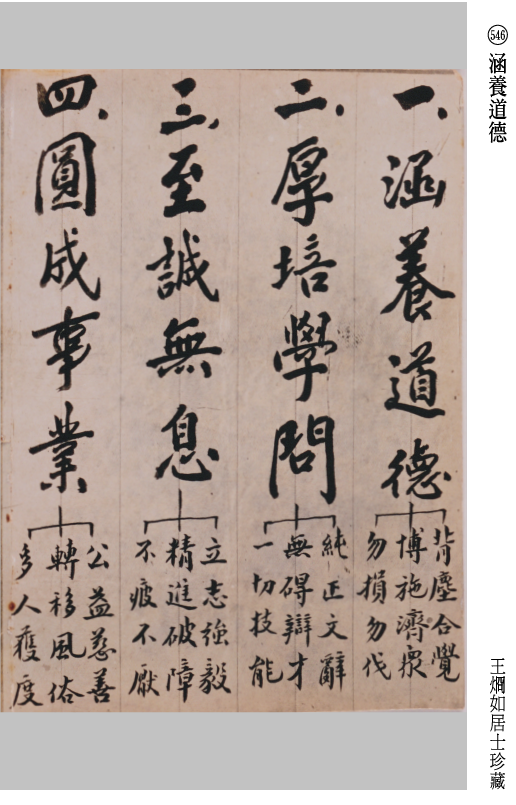 546 涵養道德
一、涵養道德
背塵合覺
博施濟眾
勿損勿伐
二、厚培學問
純正文辭
無碍辯才
一切技能
三、至誠無息
立志強毅
精進破障
不疲不厭
四、圓成事業
公益慈善
轉移風俗
多人獲度
王烱如居士珍藏